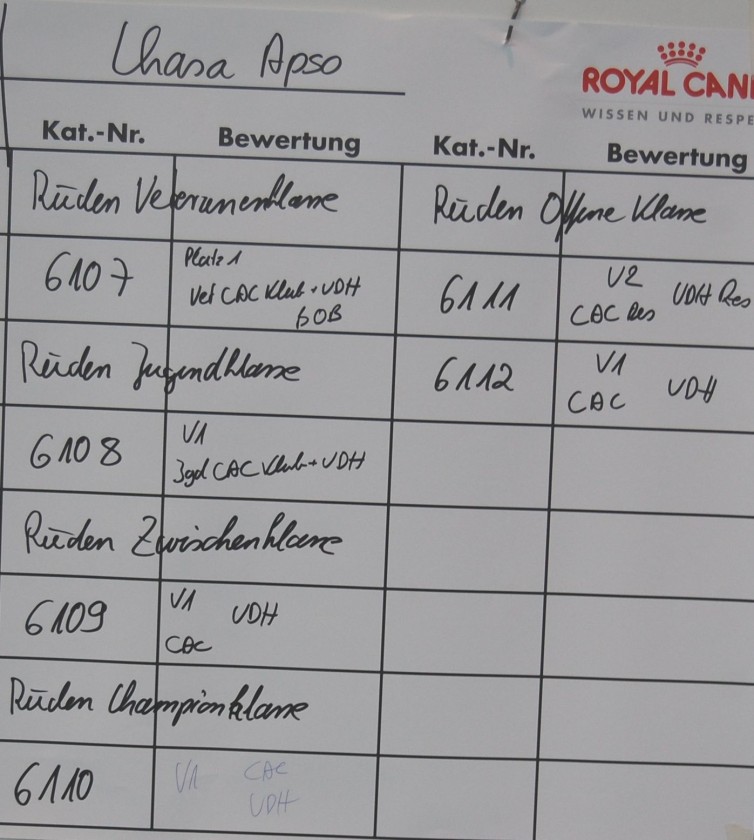 Lhasa Apso
ROYAL CANI
WISSEN UND RESPE
Kat.-Nr. Bewertung
Rüden Veteranenklasse
6107
Platz 1
Vet CAC Klub + VDH
BOB
Rüden Jugendklasse
6108
V1
Jgd CAC Klub + VDH
Rüden Zwischenklasse
6109
V1 VDH
CAC
Rüden Championklasse
6110
V1 CAC
VDH
Kat.-Nr. Bewertung
Rüden Offene Klasse
6111
V2
CAC Res VDH Res
6112
V1
CAC VDH